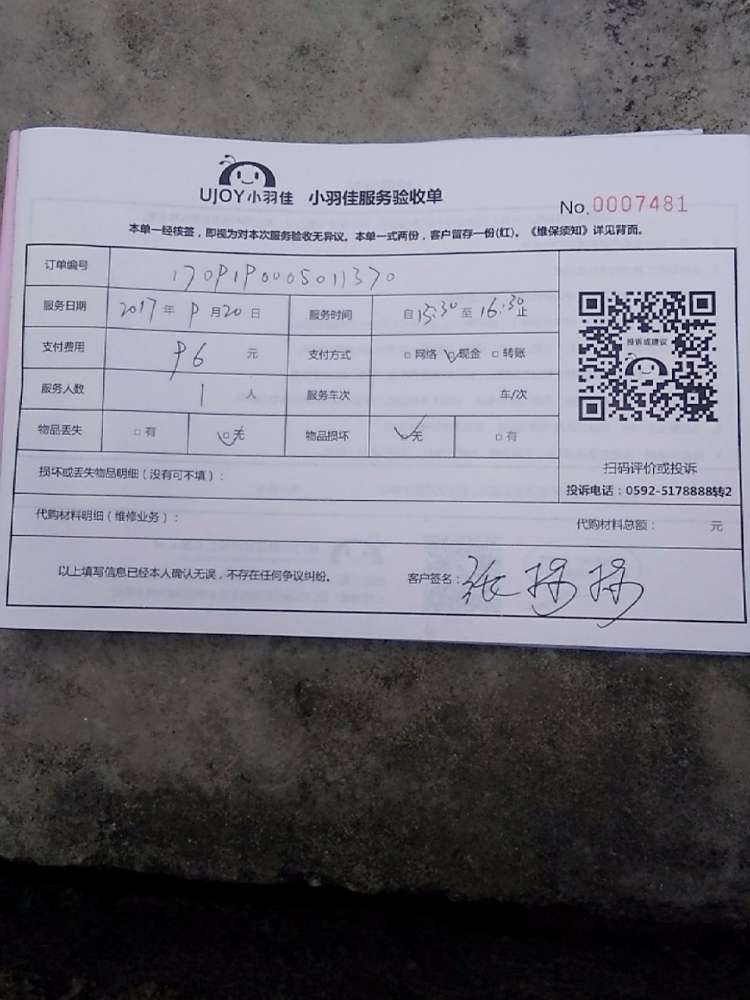 UJOY小羽佳 小羽佳服务验收单
No.0007481
本单一经核签，即视为对本次服务验收无异议。本单一式两份，客户留存一份(红)。《维保须知》详见背面。
订单编号 1709190005011370
服务日期 2017年9月20日 服务时间 自15:30至16:30止
支付费用 96元 支付方式 □网络 □现金 □转账
服务人数 1人 服务车次 车/次
物品丢失 □有 □无 物品损坏 □无 □有
投诉或建议
扫码评价或投诉
投诉电话：0592-5178888转2
损坏或丢失物品明细（没有可不填）：
代购材料明细（维修业务）： 代购材料总额： 元
以上填写信息已经本人确认无误，不存在任何争议纠纷。 客户签名：张